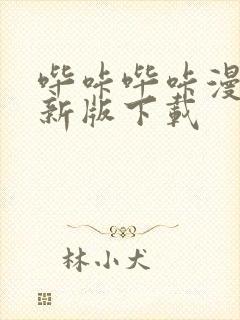 哔咔哔咔漫
新版下载
林小犬